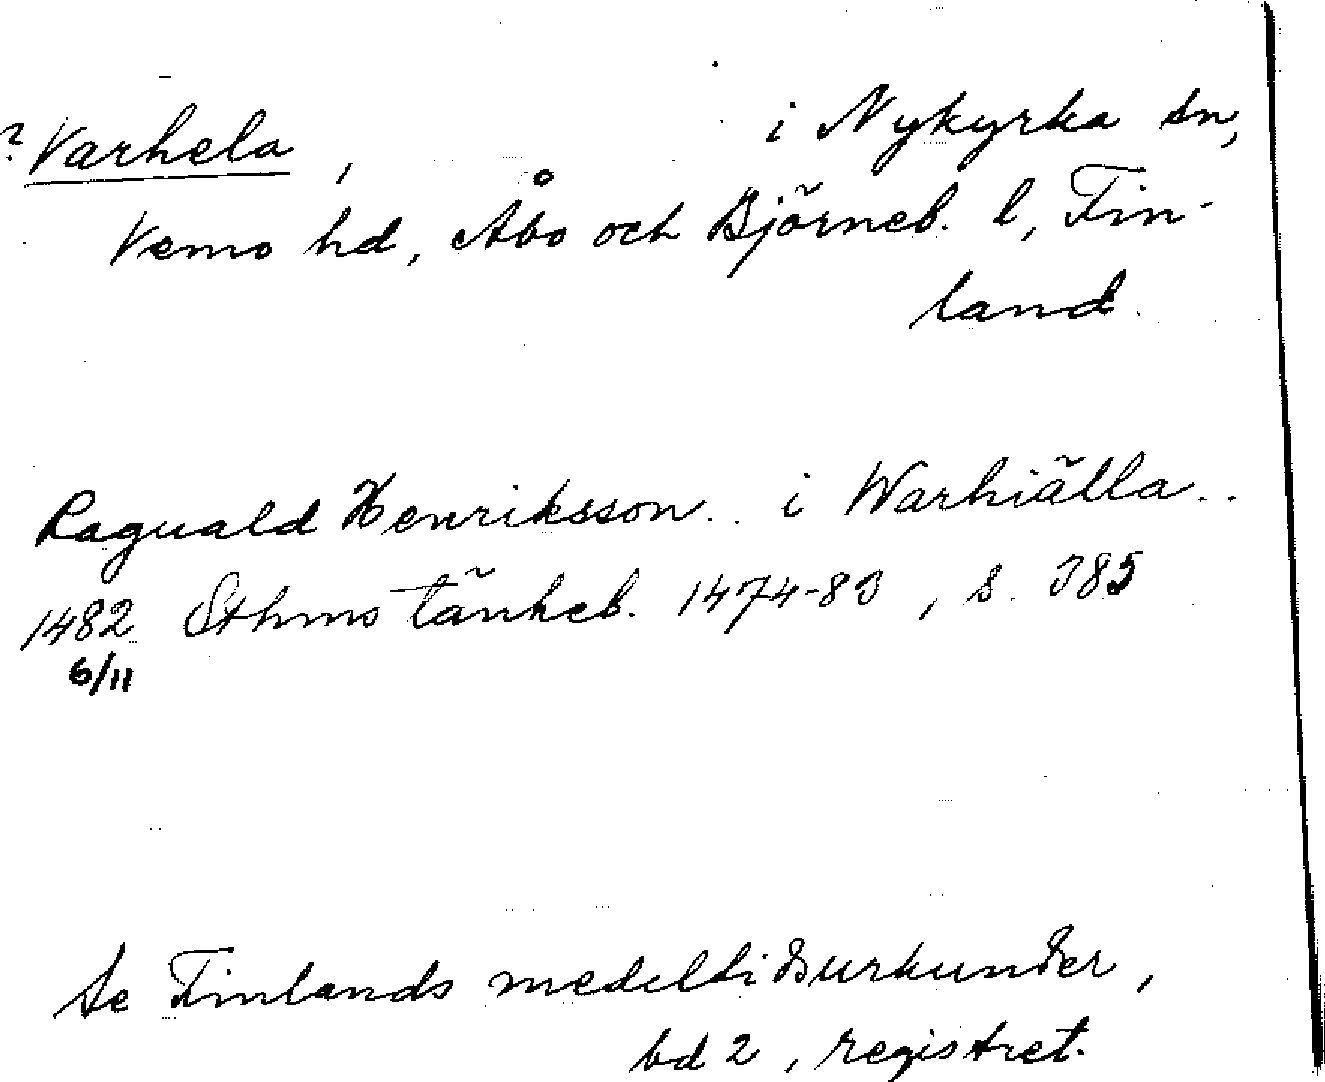 ? Varhela, i Nykyrka sn,
Vemo hd, Åbo och Björneb. l, Fin-
land.
Raguald Henriksson.. i Warhiälla..
1482 Sthms tänkeb. 1474-83, s. 385
6/11
Se Finlands medeltidsurkunder,
bd 2, registret.